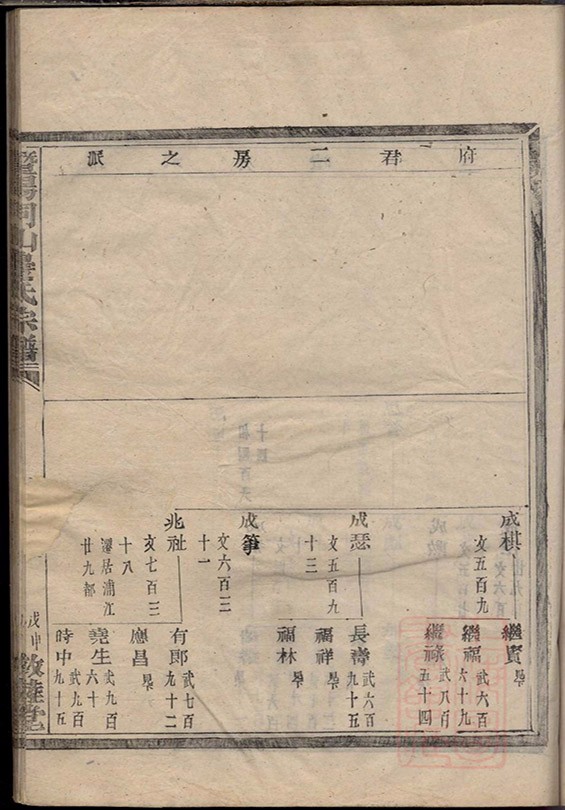 府君二房之派
成棋
文五百九
成瑟
文五百九
十三
成筆
文六百三
十一
兆祉
文七百三
十八
遷居浦江
廿九都
繼賓 早
繼福 武六百
六十九
繼祿 武八百
五十四
長壽 武六百
九十五
福祥 早
福林 早
有郎 武七百
九十二
應昌 早
堯生 武九百
六十
時中 武九百
九十五
暨陽同山壽氏宗譜
戊申
敦睦堂